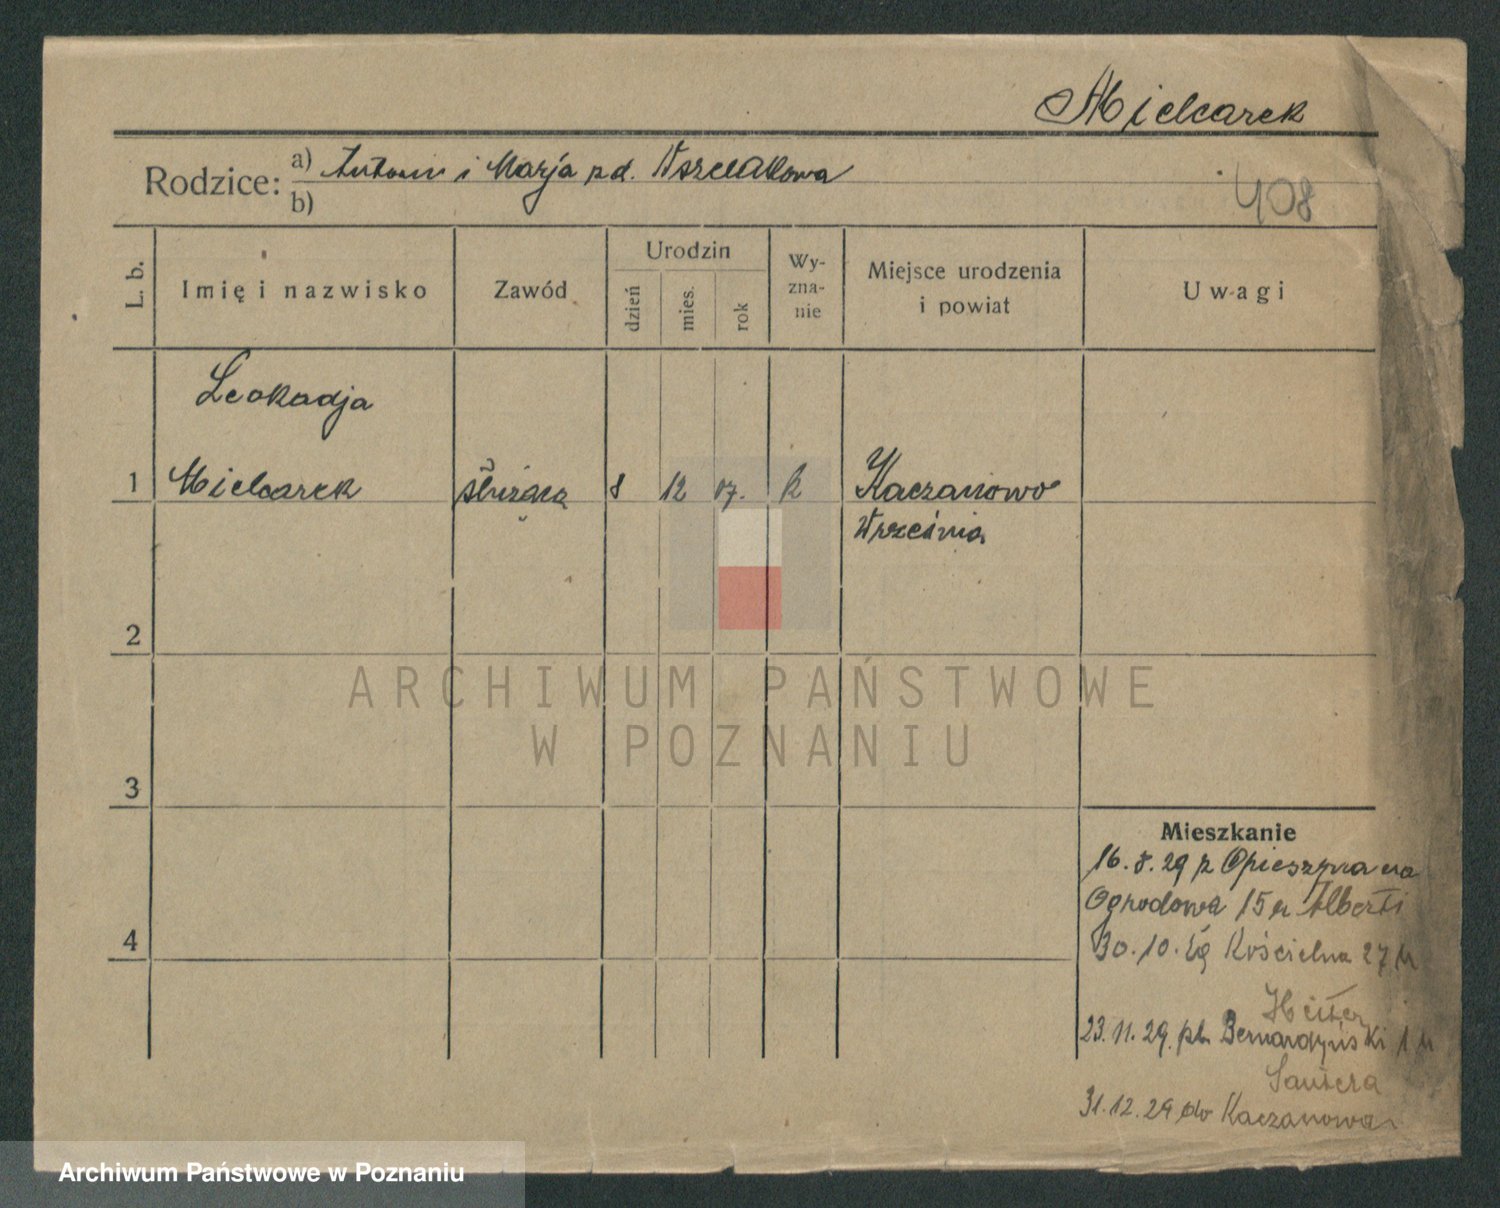 Mielcarek
Rodzice: a) Antoni i Marja pd. Wszelakowa
b)
408
L. b.
Imię i nazwisko
Zawód
Urodzin
dzień
mies.
rok
Wy-
zna-
nie
Miejsce urodzenia
i powiat
Uwagi
Leokadja
1 Mielcarek służąca 8 12 07. R Kaczanowo
Września
2
3
4
Mieszkanie
16.8.29 z
Ogrodowa 15 u Alberti
30.10.29 Kościelna 27 u
23.11.29. pl. Bernardyński 1 u
31.12.29 do Kaczanowa
ARCHIWUM PAŃSTWOWE
W POZNANIU
Archiwum Państwowe w Poznaniu